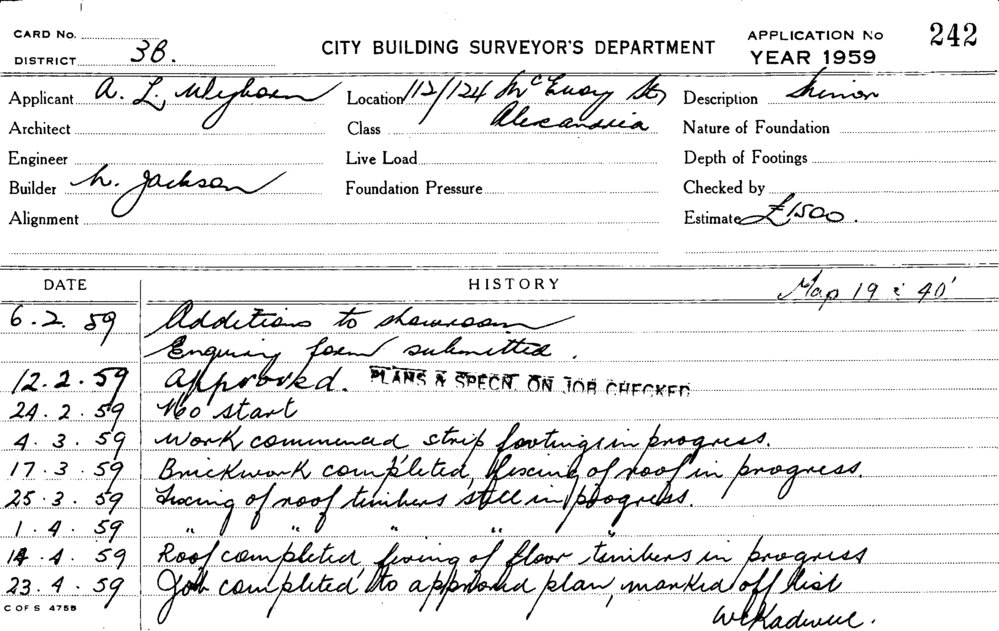 CARD No.
DISTRICT 3B.
CITY BUILDING SURVEYOR'S DEPARTMENT
APPLICATION No 242
YEAR 1959
Applicant A. L.
Location 112/124 McEvoy St,
Description Minor
Architect
Class Alexandria
Nature of Foundation
Engineer
Live Load
Depth of Footings
Builder H. Jackson
Foundation Pressure
Checked by
Alignment
Estimate £1500.
DATE HISTORY
Map 19 : 40'
6.2.59 Additions to showroom
Enquiry form submitted.
12.2.59 Approved. PLANS & SPECN. ON JOB CHECKED
24.2.59 No start
4.3.59 Work commenced strip footings in progress.
17.3.59 Brickwork completed, fixing of roof in progress.
25.3.59 Fixing of roof timbers still in progress.
1.4.59 " " " "
14.4.59 Roof completed, fixing of floor timbers in progress
23.4.59 Job completed to approved plan, marked off list
C OF S 475B